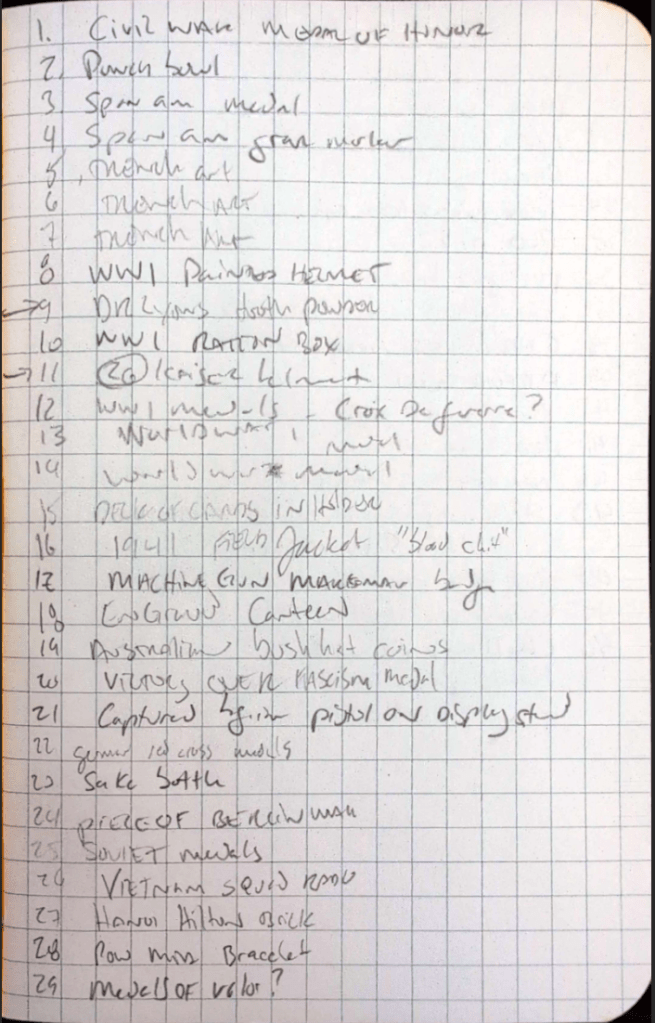 1. Civil WAR MEDAL OF HONOR
2. Punch bowl
3 Span am medal
4 Span am grave marker
5 TRENCH art
6 TRENCH ART
7 TRENCH ART
8 WW1 PAINTED HELMET
→9 DR Lyons tooth powder
10 WW1 RATION BOX
→11 Kaiser helmet
12 WW1 medals - Croix De guerre?
13 WORLD WAR 1 medal
14 WORLD WAR medal
15 DECK OF CARDS IN HOLDER
16 1941 FIELD Jacket "blood chit"
17 MACHINE GUN MARKSMAN badge
18 ENGRAVED Canteen
19 AUSTRALIAN bush hat coins
20 VICTORY OVER FASCISM medal
21 Captured pistol on Display stand
22 german red cross medals
23 Sake bottle
24 PIECE OF BERLIN WALL
25 SOVIET medals
26 VIETNAM SQUAD RADIO
27 Hanoi Hilton Brick
28 Pow MIA Bracelet
29 medals OF valor?